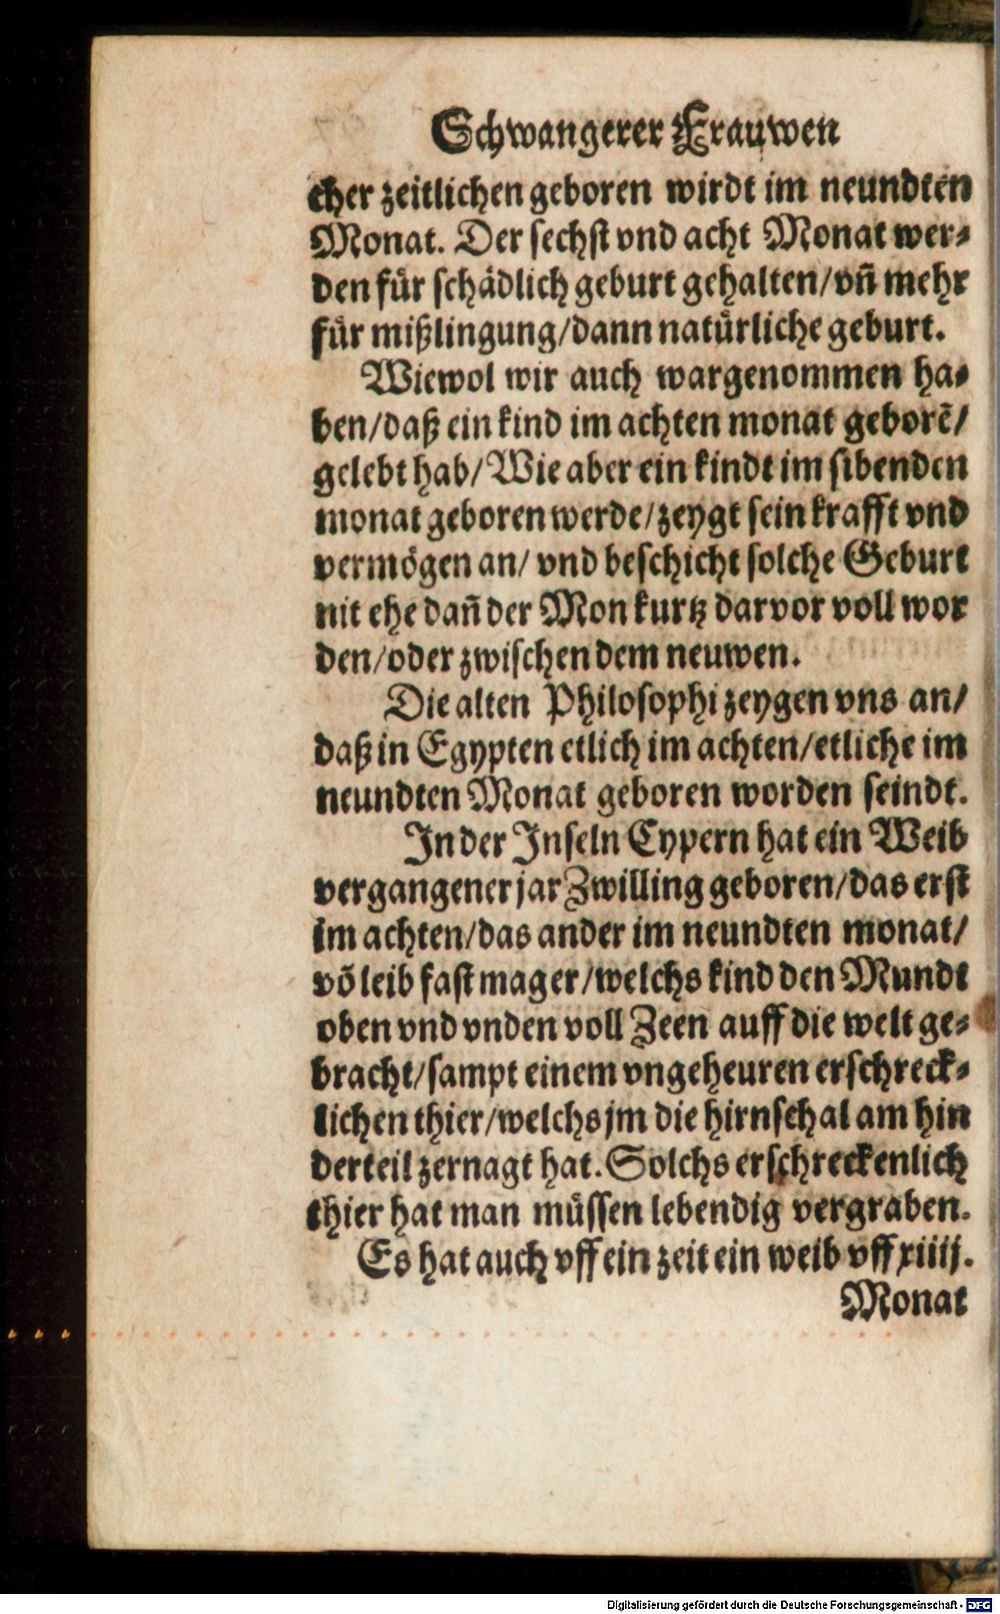 Schwangerer Frauwen
cher zeitlichen geboren wirdt im neundten
Monat. Der sechst vnd acht Monat wer⸗
den für schädlich geburt gehalten/ vñ mehr
für mißlingung/ dann natürliche geburt.
Wiewol wir auch wargenommen ha⸗
ben/ daß ein kind im achten monat geborẽ/
gelebt hab/ Wie aber ein kindt im sibenden
monat geboren werde/ zeygt sein krafft vnd
vermögen an/ vnd beschicht solche Geburt
nit ehe dañ der Mon kurtz darvor voll wor
den/ oder zwischen dem neuwen.
Die alten Philosophi zeygen vns an/
daß in Egypten etlich im achten/ etliche im
neundten Monat geboren worden seindt.
In der Inseln Cypern hat ein Weib
vergangener jar Zwilling geboren/ das erst
im achten/ das ander im neundten monat/
võ leib fast mager/ welchs kind den Mundt
oben vnd vnden voll Zeen auff die welt ge⸗
bracht/ sampt einem vngeheuren erschreck⸗
lichen thier/ welchs jm die hirnschal am hin
derteil zernagt hat. Solchs erschreckenlich
thier hat man müssen lebendig vergraben.
Es hat auch vff ein zeit ein weib vff xiiij.
Monat
Digitalisierung gefördert durch die Deutsche Forschungsgemeinschaft - DFG